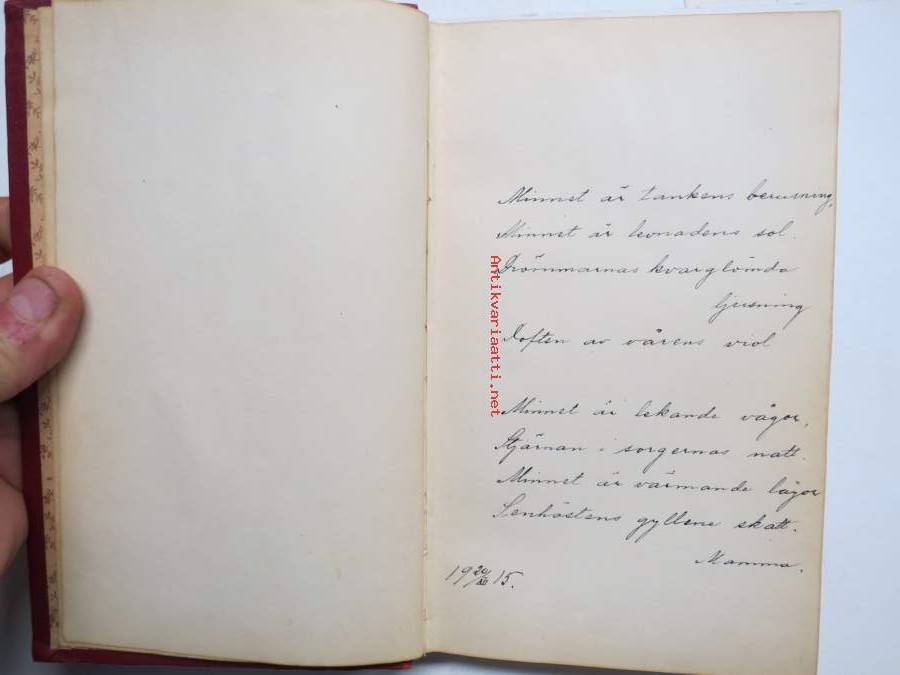 Minnet är tankens berusning,
Minnet är levnadens sol.
Drömmarnas kvarglömda
ljusning
Doften av vårens viol
Minnet är lekande vågor,
Stjärnan i sorgernas natt.
Minnet är värmande lågor
Senhöstens gyllene skatt.
Mamma.
19 15.
Antikvariaatti.net